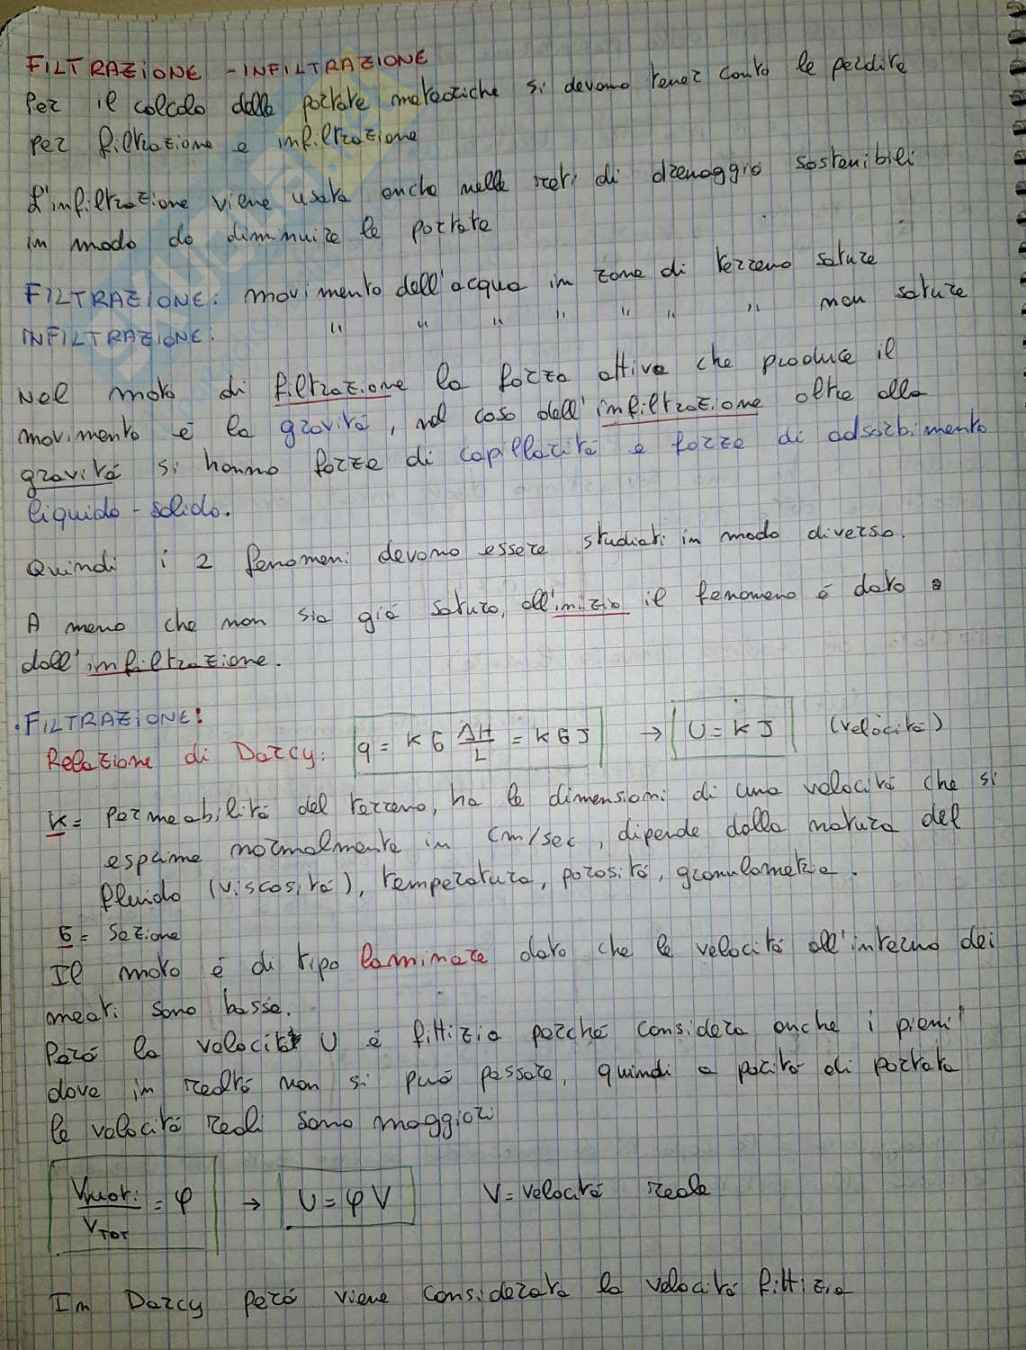 FILTRAZIONE - INFILTRAZIONE
Per il calcolo delle portate meteoriche si devono tener conto le perdite
per filtrazione e infiltrazione
L'infiltrazione viene usata anche nelle reti di drenaggio sostenibili
in modo da diminuire le portate
FILTRAZIONE: movimento dell'acqua in zone di terreno sature
INFILTRAZIONE: " " " " " " " non sature
Nel moto di filtrazione la forza attiva che produce il
movimento è la gravità, nel caso dell'infiltrazione oltre alla
gravità si hanno forze di capillarità e forze di adsorbimento
liquido-solido.
Quindi i 2 fenomeni devono essere studiati in modo diverso.
A meno che non sia già saturo, all'inizio il fenomeno è dato
dall'infiltrazione.
• FILTRAZIONE:
Relazione di Darcy: q = K σ ΔH/L = K σ J → U = K J (velocità)
K = permeabilità del terreno, ha le dimensioni di una velocità che si
esprime normalmente in cm/sec, dipende dalla natura del
fluido (viscosità), temperatura, porosità, granulometria.
σ = sezione
Il moto è di tipo laminare dato che le velocità all'interno dei
meati sono basse.
Però la velocità U è fittizia perché considera anche i pieni
dove in realtà non si può passare, quindi a parità di portata
le velocità reali sono maggiori
Vvuoti/VTOT = φ → U = φ V V = velocità reale
In Darcy però viene considerata la velocità fittizia